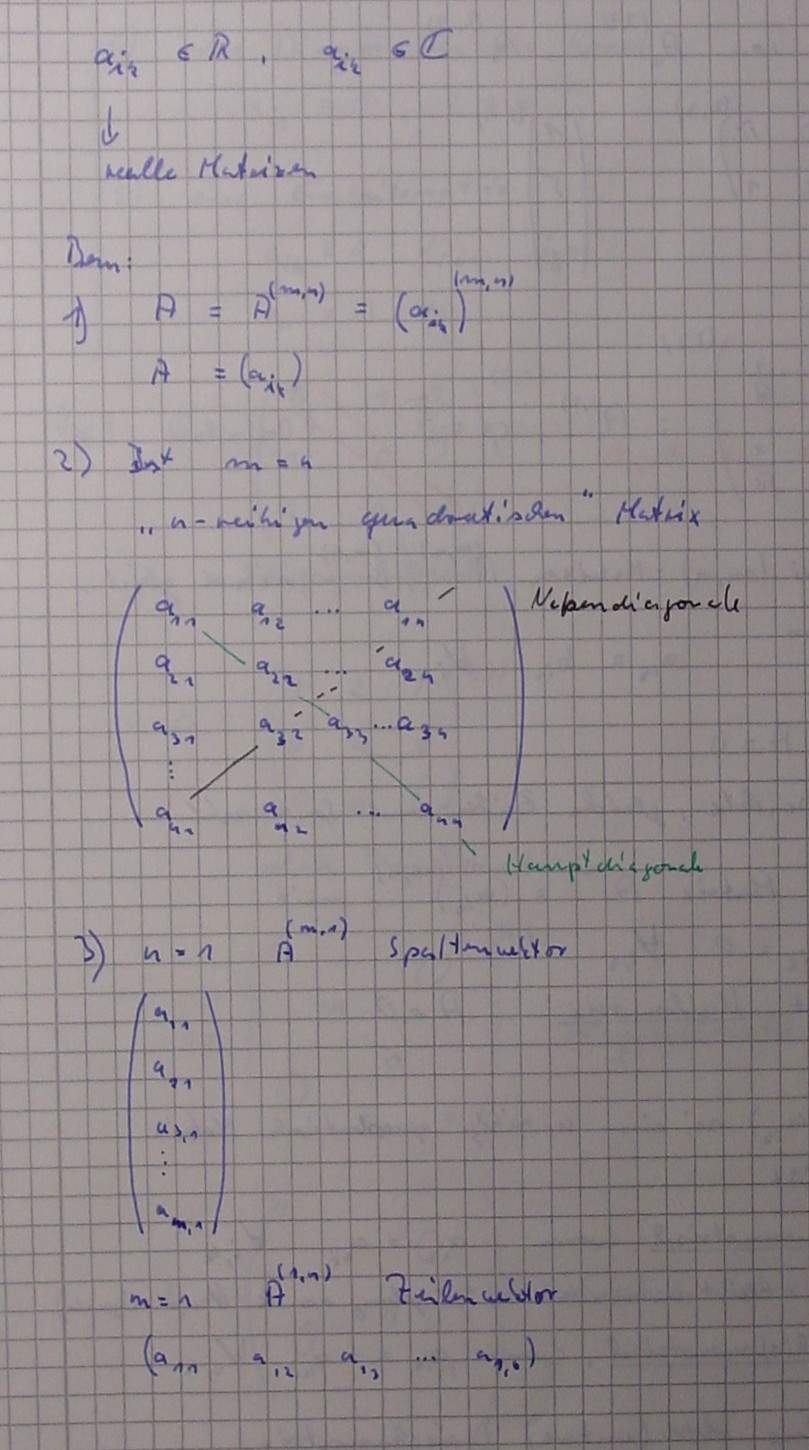 a_ik ∈ ℝ , a_ik ∈ ℂ
↓
reelle Matrixen
Bem:
1) A = A^(m,n) = (a_ik)^(m,n)
A = (a_ik)
2) Ist m = n
„ n-reihigen quadratischen “ Matrix
a_11 a_12 ... a_1n Nebendiagonale
a_21 a_22 ... a_2n
a_31 a_32 a_33 ... a_3n
⋮
a_n1 a_n2 ... a_nn
Hauptdiagonale
3) n = 1 A^(m,1) Spaltenvektor
a_11
a_21
a_3,1
⋮
a_m,1
m = 1 A^(1,n) Zeilenvektor
(a_11 a_12 a_13 ... a_1,n)